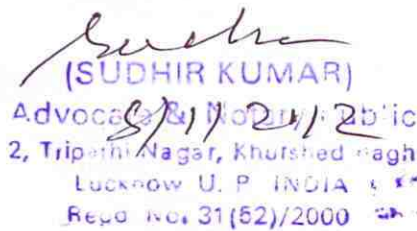 Sudhir
(SUDHIR KUMAR)
Advocate & Notary Public
8/1/2112
2, Tripathi Nagar, Khurshed Bagh
Lucknow U. P. INDIA
Regd No. 31(52)/2000